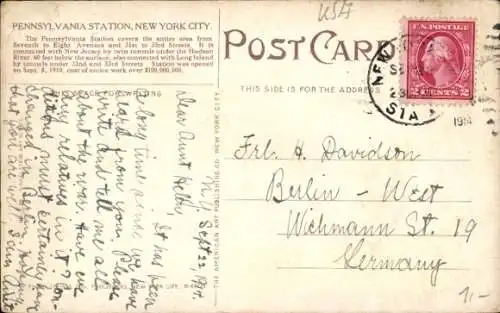 USA
PENNSYLVANIA STATION, NEW YORK CITY.
The Pennsylvania Station covers the entire area from
Seventh to Eight Avenues and 31st to 33rd Streets. It is
connected with New Jersey by twin tunnels under the Hudson
River, 60 feet below the surface, also connected with Long Island
by tunnels under 32nd and 33rd Streets. Station was opened
on Sept. 8, 1910, cost of entire work over $100,000,000.
POST CARD
THIS SIDE IS FOR THE ADDRESS
U.S. POSTAGE
2 CENTS 2
NEW
STA
191
FOR WRITING
THE AMERICAN ART PUBLISHING
NEW YORK CITY
N.Y. Sept 22, 1914.
Dear Aunt Hetty,
It has been
a long time since we have
heard from you. Please
write and tell me all
about the war. Have we
any relatives in it? Con-
ditions must certainly have
changed in Berlin.
that you are well
Frl. H. Davidson
Berlin - West
Wichmann St. 19
Germany
1,-